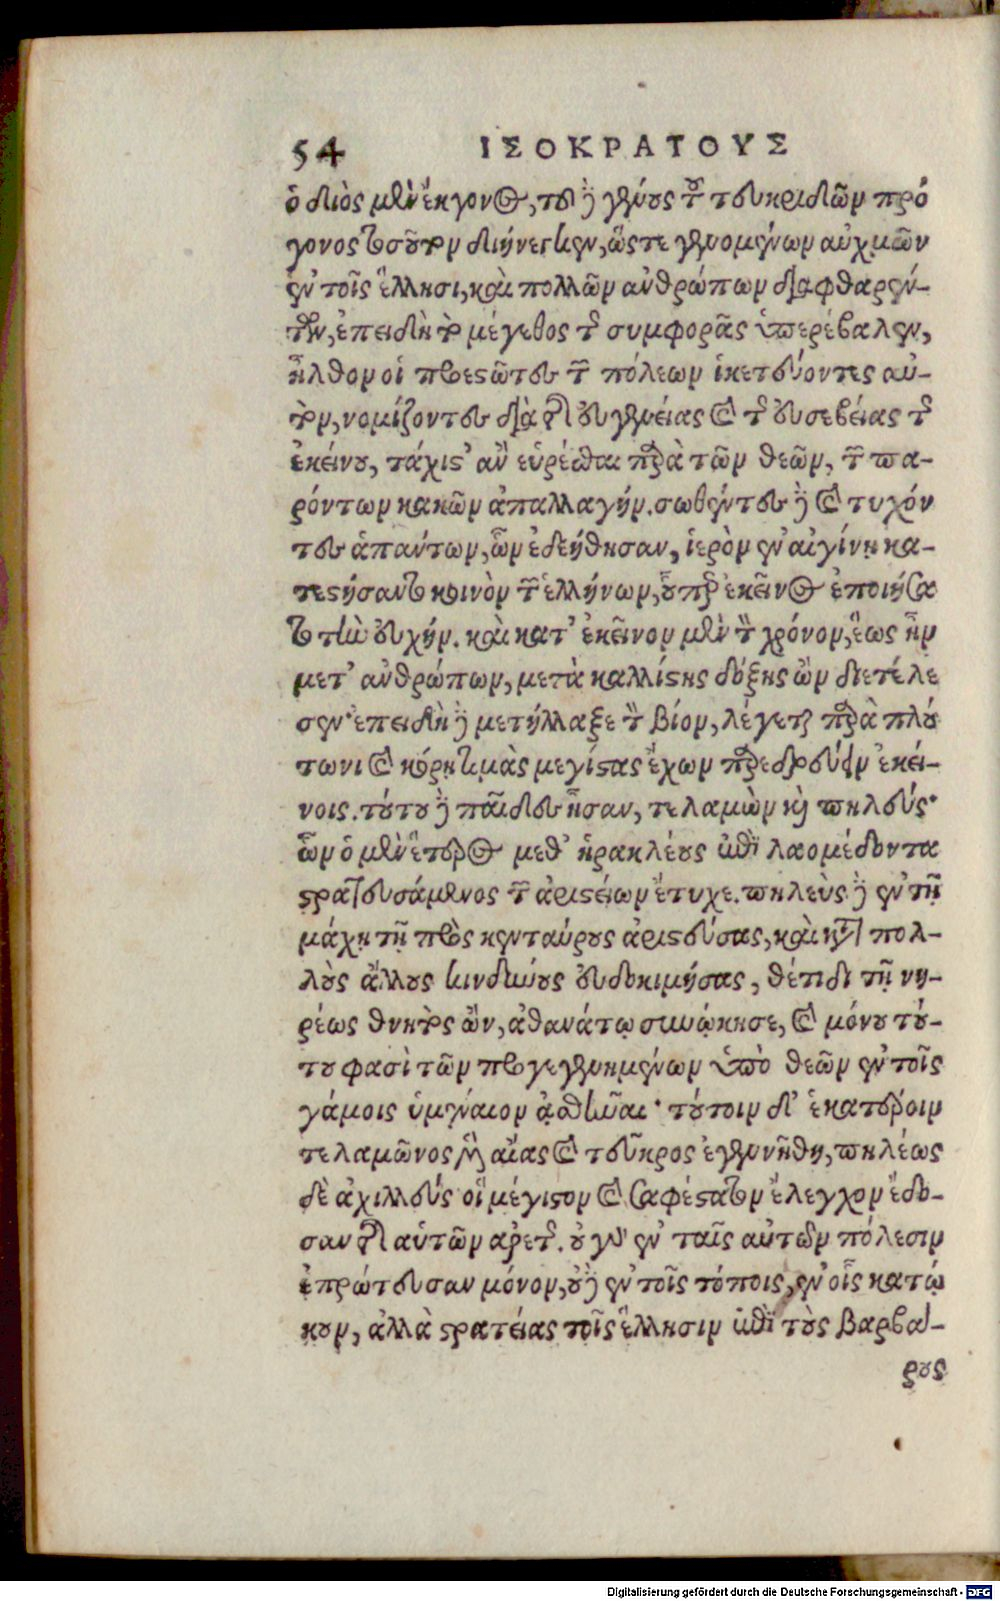 54 ΙΣΟΚΡΑΤΟΥΣ
ὁ διὸς μὲν ἔκγονος, τοῦ δὲ γένους τοῦ τευκριδῶν πρό
γονος τοσοῦτον διήνεγκεν, ὥστε γενομένων αὐχμῶν
ἐν τοῖς ἕλλησι, καὶ πολλῶν ἀνθρώπων διαφθαρέν-
των, ἐπειδὴ τὸ μέγεθος τῆς συμφορᾶς ὑπερέβαλεν,
ἦλθον οἱ προεστῶτες τῶν πόλεων ἱκετεύοντες αὐ-
τὸν, νομίζοντες διὰ τῆς εὐγενείας καὶ τῆς εὐσεβείας τῆς
ἐκείνου, τάχιστ' ἂν εὑρέσθαι παρὰ τῶν θεῶν, τῶν πα-
ρόντων κακῶν ἀπαλλαγήν. σωθέντες δὲ καὶ τυχόν
τες ἁπάντων, ὧν ἐδεήθησαν, ἱερὸν ἐν αἰγίνῃ κα-
τεστήσαντο κοινὸν τῶν ἑλλήνων, οὗπερ ἐκεῖνος ἐποιήσα
το τὴν εὐχήν. καὶ κατ' ἐκεῖνον μὲν τὸν χρόνον, ἕως ἦν
μετ' ἀνθρώπων, μετὰ καλλίστης δόξης ὢν διετέλε
σεν· ἐπειδὴ δὲ μετήλλαξε τὸν βίον, λέγεται παρὰ πλού
τωνι καὶ κόρῃ τιμὰς μεγίστας ἔχων παρεδρεύειν ἐκεί-
νοις. τούτου δὲ παῖδες ἦσαν, τελαμὼν καὶ πηλεύς·
ὧν ὁ μὲν ἕτερος μεθ' ἡρακλέους ἐπὶ λαομέδοντα
στρατευσάμενος τῶν ἀριστείων ἔτυχε. πηλεὺς δὲ ἐν τῇ
μάχῃ τῇ πρὸς κενταύρους ἀριστεύσας, καὶ κατὰ πολ-
λοὺς ἄλλους κινδύνους εὐδοκιμήσας, θέτιδι τῇ νη-
ρέως θνητὸς ὢν, ἀθανάτῳ συνῴκησε, καὶ μόνου τού-
του φασὶ τῶν προγεγενημένων ὑπὸ θεῶν ἐν τοῖς
γάμοις ὑμέναιον ᾀσθῆναι· τούτοιν δ' ἑκατέροιν
τελαμῶνος μὲν αἴας καὶ τεῦκρος ἐγεννήθη, πηλέως
δὲ ἀχιλλεύς οἳ μέγιστον καὶ σαφέστατον ἔλεγχον ἔδο-
σαν τῆς αὑτῶν ἀρετῆς. οὐ γὰρ ἐν ταῖς αὑτῶν πόλεσιν
ἐπρώτευσαν μόνον, οὐδὲ ἐν τοῖς τόποις, ἐν οἷς κατῴ
κουν, ἀλλὰ στρατείας τοῖς ἕλλησιν ἐπὶ τοὺς βαρβά-
ρους
Digitalisierung gefördert durch die Deutsche Forschungsgemeinschaft - DFG